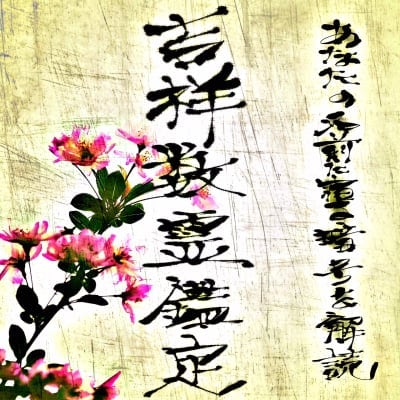 あなたの名前に宿る暗号を解読
吉祥数霊鑑定